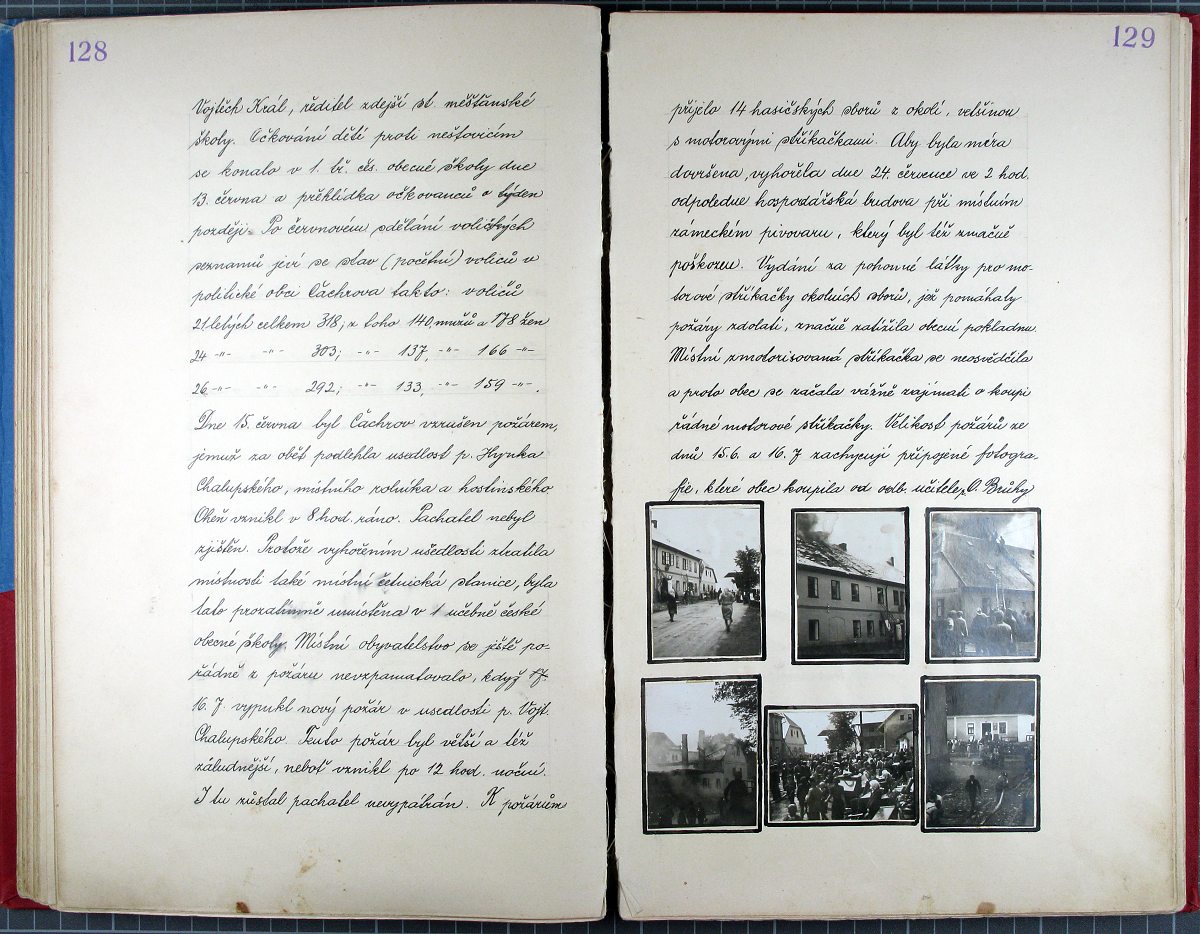 128
Vojtěch Král, ředitel zdejší st. měšťanské
školy. Očkování dětí proti neštovicím
se konalo v 1. tř. čes. obecné školy dne
13. června a přehlídka očkovanců o týden
později. Po červnovém sdělání voličských
seznamů jeví se stav (početní) voličů v
politické obci Čachrova takto: voličů
21letých celkem 318; z toho 140 mužů a 178 žen
24 -"- -"- 303; -"- 137, -"- 166 -"-
26 -"- -"- 292; -"- 133, -"- 159 -"-.
Dne 15. června byl Čachrov vzrušen požárem,
jemuž za oběť podlehla usedlost p. Hynka
Chalupského, místního rolníka a hostinského.
Oheň vznikl v 8 hod. ráno. Pachatel nebyl
zjištěn. Protože vyhořením usedlosti ztratila
místnosti také místní četnická stanice, byla
tato prozatímně umístěna v 1 učebně české
obecné školy. Místní obyvatelstvo se ještě po-
řádně z požáru nevzpamatovalo, když
16. 7. vypukl nový požár v usedlosti p. Vojt.
Chalupského. Tento požár byl větší a též
záludnější, neboť vznikl po 12 hod. noční.
I tu zůstal pachatel nevypátrán. K požárům
129
přijelo 14 hasičských sborů z okolí, většinou
s motorovými stříkačkami. Aby byla míra
dovršena, vyhořela dne 24. července ve 2 hod.
odpoledne hospodářská budova při místním
zámeckém pivovaru, který byl též značně
poškozen. Vydání za pohonné látky pro mo-
torové stříkačky okolních sborů, jež pomáhaly
požáry zdolati, značně zatížila obecní pokladnu.
Místní zmotorisovaná stříkačka se neosvědčila
a proto obec se začala vážně zajímati o koupi
řádné motorové stříkačky. Velikost požárů ze
dnů 15.6. a 16.7 zachycují připojené fotogra-
fie, které obec koupila od odb. učitele O. Brůhy